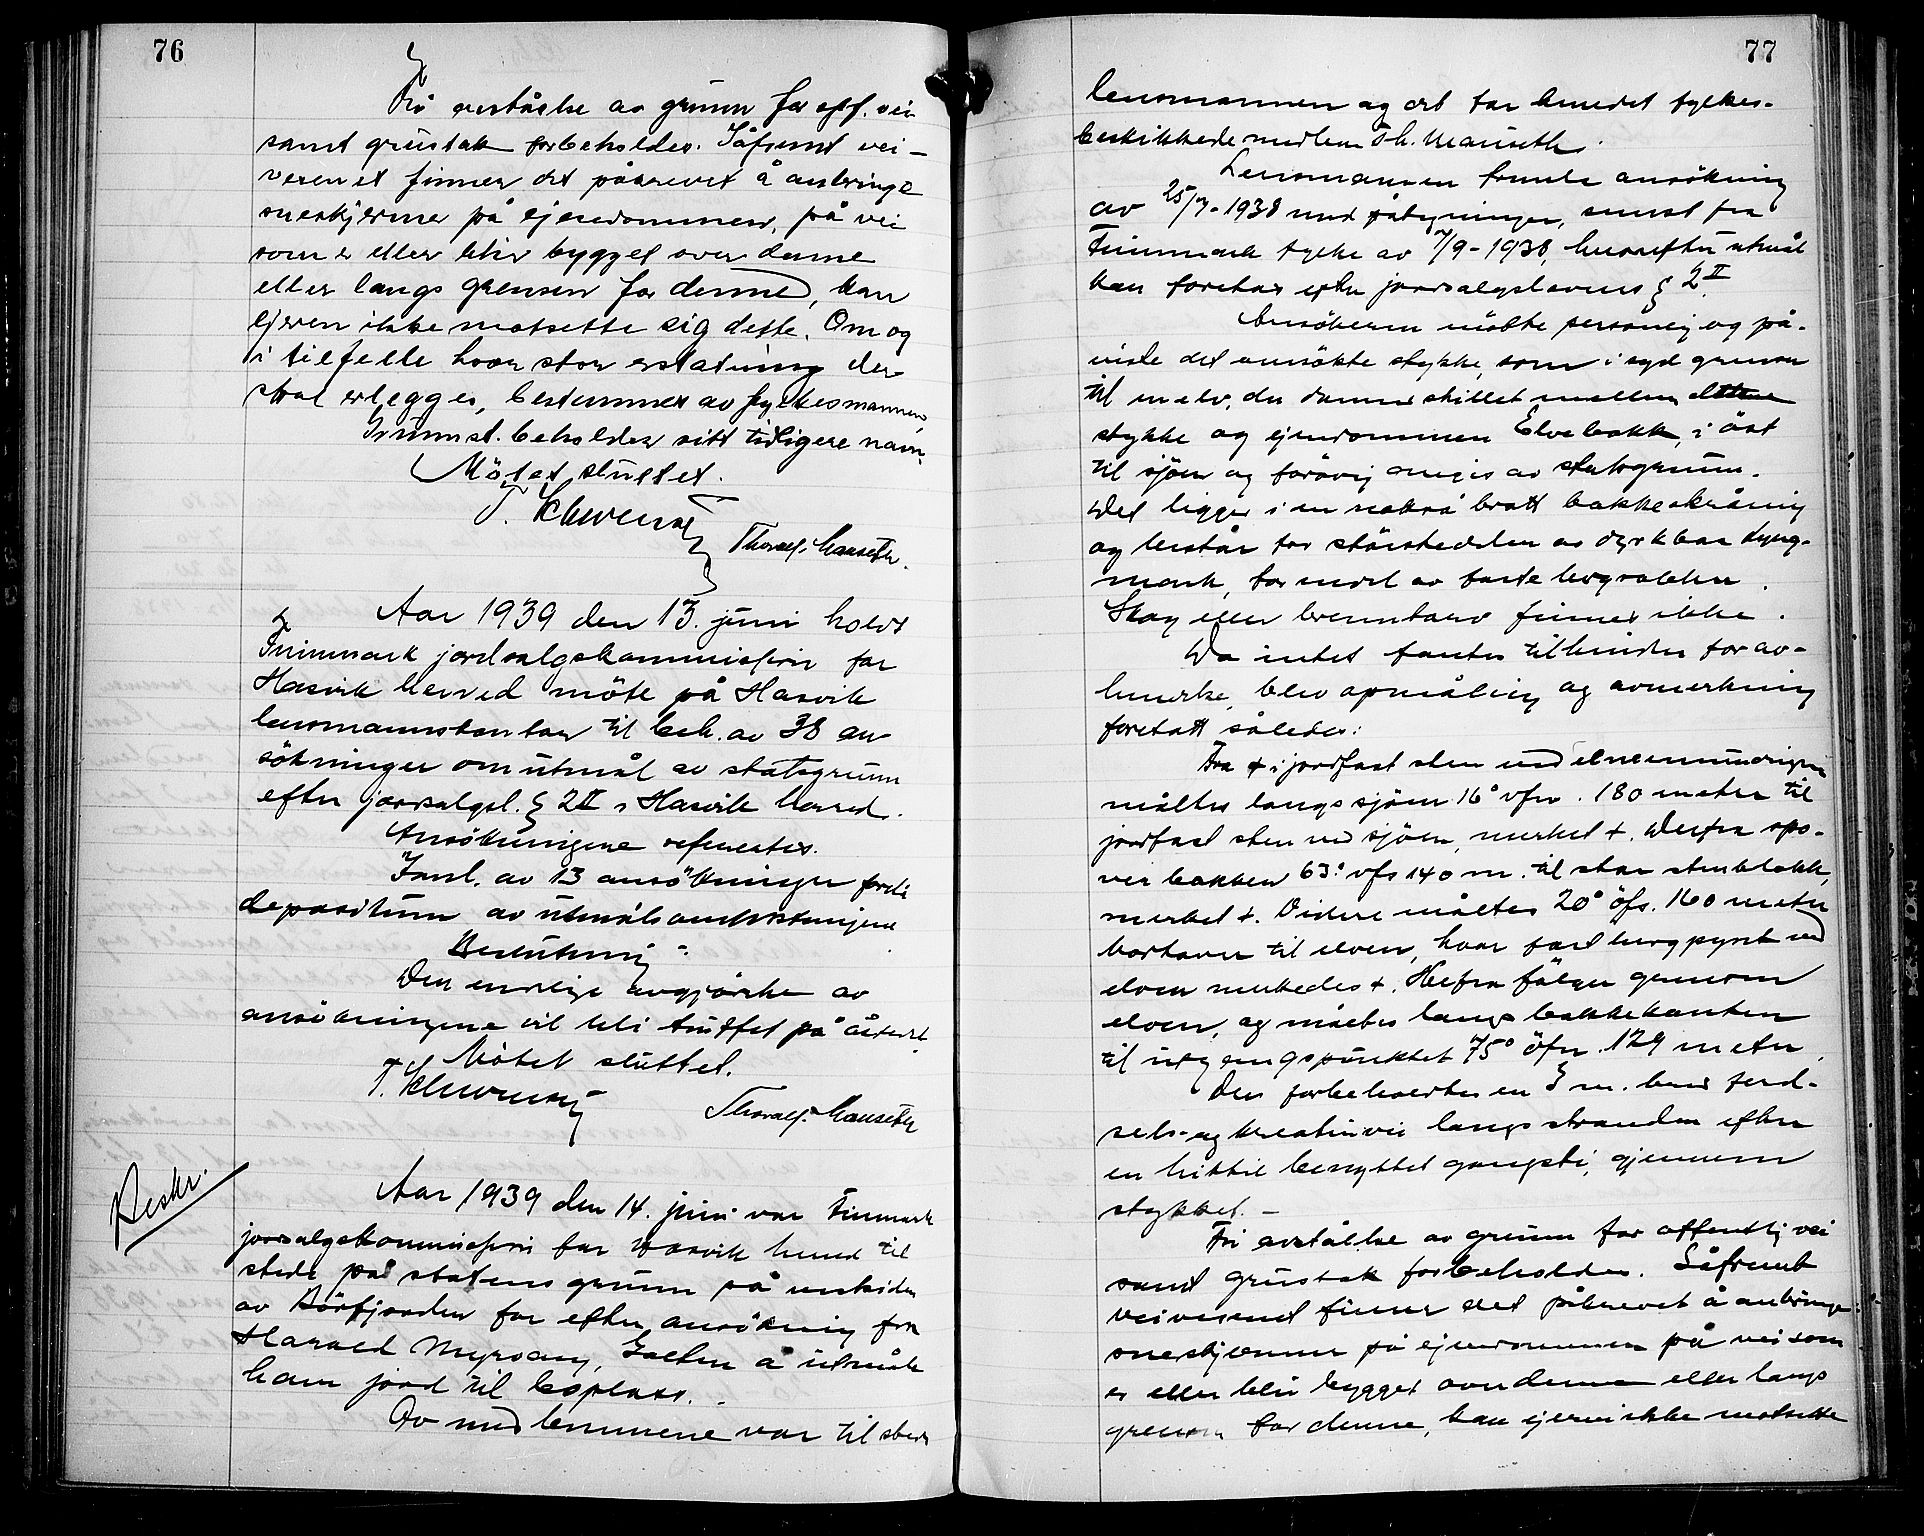 76
Fri avståelse av grunn for off. vei
samt grustak forbeholdes. Såfremt vei-
vesenet finner det påkrevet å anbringe
sneskjermer på ejendommen, på vei
som er eller blir bygget over denne
eller langs grensen for denne, kan
ejeren ikke motsette sig dette. Om og
i tilfelle hvor stor erstatning der
skal erlegges, bestemmes av fylkesmannen
Grunnst. beholder sitt tidligere navn.
Mötet sluttet.
Thoralf Mauseth.
Aar 1939 den 13. juni holdt
Finnmark jordsalgskommissjon for
Hasvik herred möte på Hasvik
lensmannskontor til beh. av 38 an
sökninger om utmål av statsgrunn
efter jordsalgsl. § 2 II i Hasvik herred.
Ansökningene refereertes.
av 13 ansökninger fordi
depositum av utmålsomkostningene
Beslutning:
Den endelige avgjörelse av
ansökningene vil bli truffet på åstedet.
Mötet sluttet.
Thoralf Mauseth
Beskr.
Aar 1939 den 14. juni var Finmark
jordsalgskommissjon for Hasvik herred til
stede på statens grunn på
av Börfjorden for efter ansökning fra
Harald Myrvang, å utmåle
ham jord til boplass.
Av medlemmene var til stede
77
lensmannen og det for herredet fylkes-
beskikkede medlem Th. Mauseth.
Lensmannen fremla ansökning
av 25/7-1938 med påtegninger, senest fra
Finnmark fylke av 7/9-1938, hvorefter utmål
kan foretas efter jordsalgslovens § 2 II.
Ansökeren mötte personlig og på-
viste det ansökte stykke, som i syd grenser
til en elv, der danner skillet mellem dette
stykke og ejendommen Elvebakk, i öst
til sjöen og forövrig omgis av statsgrunn.
Det ligger i en nokså bratt bakkeskråning
og består for störstedelen av dyrkbar lyng-
mark, for en del av faste bergrabber.
Skog eller brenntorv finnes ikke.
Da intet fantes til hinder for av-
hendelse, blev opmåling og avmerkning
foretatt således:
Fra + i jordfast sten ved elvemunningen
måltes langs sjöen 16° vfn. 180 meter til
jordfast sten ved sjöen, merket +. Derfra opo-
ver bakken 63° vfs 140 m. til stor stenblokk,
merket +. Videre måltes 20° öfs. 160 meter
bortover til elven, hvor fast bergpynt ved
elven merkedes +. Herfra fölger grensen
elven, og måltes langs bakkekanten
til utgangspunktet 75° öfn. 129 meter.
Der forbeholdtes en 3 m. bred ferd-
sels- og kreaturvei langs stranden efter
en hittil benyttet gangsti, gjennem
stykket. —
Fri avståelse av grunn for offentlig vei
samt grustak forbeholdes. Såfremt
veivesenet finner det påkrevet å anbringe
sneskjermer på ejendommen på vei som
er eller blir bygget over denne eller langs
grensen for denne, kan ejeren ikke motsette